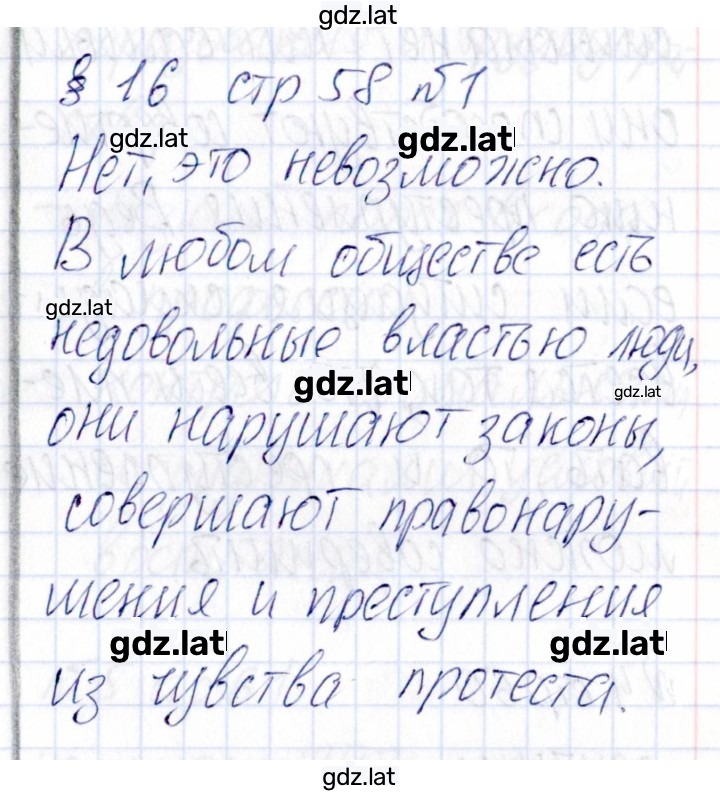 gdz.lat
§ 16 стр 58 №1
gdz.lat gdz.lat
Нет, это невозможно.
В любом обществе есть
gdz.lat
недовольные властью люди,
gdz.lat gdz.lat
они нарушают законы,
совершают правонару-
шения и преступления
gdz.lat gdz.lat
из чувства протеста.
gdz.lat